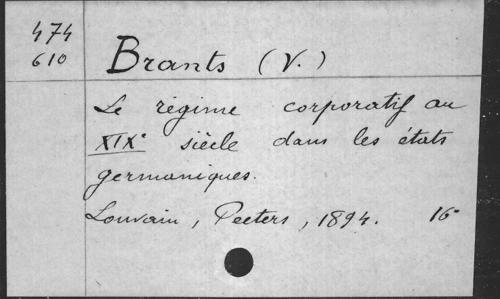 474
610
Brants (V.)
Le régime corporatif au
XIXe siècle dans les états
germaniques.
Louvain, Peeters, 1894. 16°